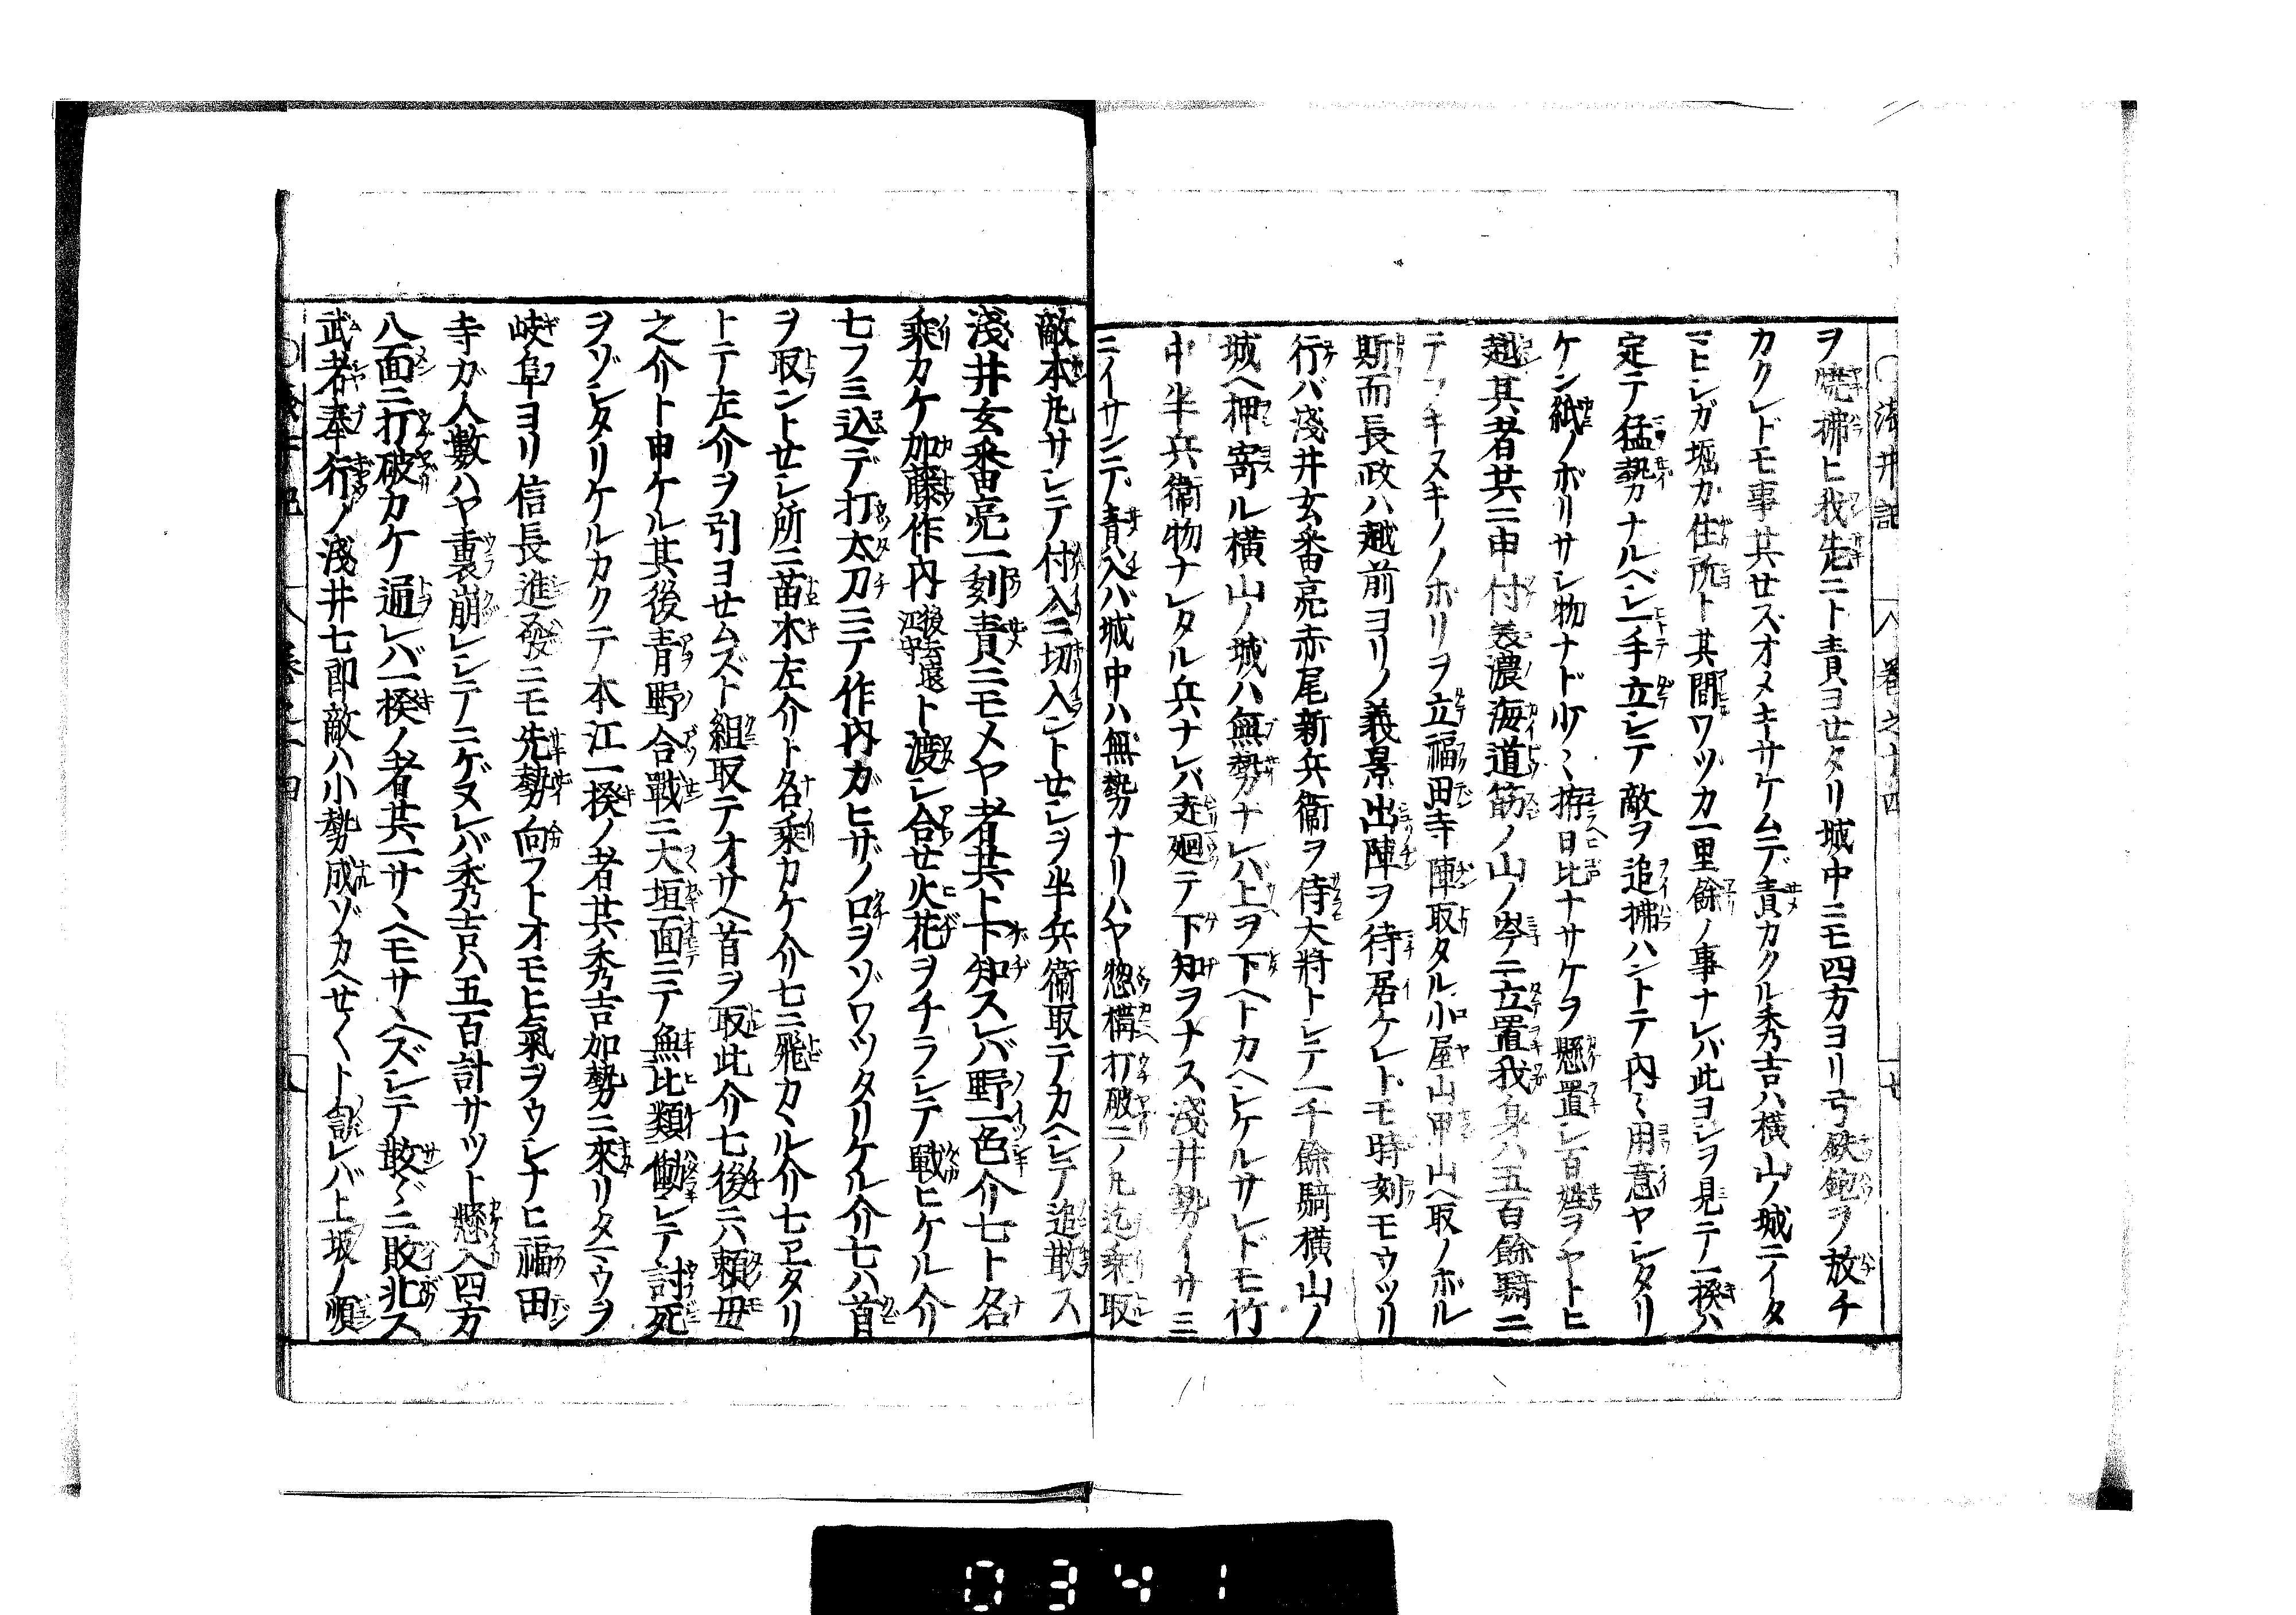 淺井記 八 卷之十四 廿
ヲ燒拂ヒ我先ニト責ヨセタリ城中ニモ四方ヨリ弓鉄炮ヲ放チ
カクレドモ事共セズオメキサケムデ責カクル秀吉ハ横山ノ城ニイタ
マヒシガ堀カ住所ト其間ワヅカ一里餘ノ事ナレバ此ヨシヲ見テ一揆ハ
定テ猛勢ナルベシ一手立シテ敵ヲ追拂ハントテ内〻用意ヤシタリ
ケン紙ノボリサシ物ナド少〻拵日比ナサケヲ懸置シ百姓ヲヤトヒ
越其者共ニ申付美濃海道筋ノ山ノ岑ニ立置我身ハ五百餘騎ニ
テ マキスキノノボリヲ立福田寺陣取タル小屋山甲山ヘ取ノボル
斯而長政ハ越前ヨリノ義景出陣ヲ待居ケレトモ時刻モウツリ
行バ淺井玄番亮赤尾新兵衞ヲ侍大將トシテ一千餘騎横山ノ
城ヘ押寄ル横山ノ城ハ無勢ナレバ上ヲ下ヘトカヘシケルサレドモ竹
中半兵衞物ナレタル兵ナレバ走廻テ下知ヲナス淺井勢イサミ
ニイサンデ責入バ城中ハ無勢ナリハヤ惣構打破二ノ丸迄乘取
敵本丸サシテ付入ニ切入ントセシヲ半兵衞取テカヘシテ追散ス
淺井玄番亮一刻責ニモメヤ者共ト下知スレバ野一色介七ト名
乘カケ加藤作内後ニ遠江守ト渡シ合セ火花ヲチラシテ戰ヒケル介
七フミ込デ打太刀ニテ作内ガヒザノ口ヲゾワツタリケル介七ハ首
ヲ取ントセシ所ニ苗木左介ト名乘カケ介七ニ飛カヽル介七ヱタリ
トテ左介ヲ引ヨセムズト組取テオサヘ首ヲ取此介七後ニ八頼母
之介ト申ケル其後青野合戰ニ大垣面ニテ無比類働シテ討死
ヲゾシタリケルカクテ本江一揆ノ者共秀吉加勢ニ來リタマウヲ
岐阜ヨリ信長進發ニモ先勢ノ向フトオモヒ氣ヲウシナヒ福田
寺ガ人數ハヤ裏崩レシテニゲヌレバ秀吉八五百計サツト懸入四方
八面ニ打破カケ通レバ一揆ノ者共一サヽヘモサヽヘズシテ散〻ニ敗北ス
武者奉行ノ淺井七郎敵ハ小勢成ゾカヘセ〱ト訇レバ上坂ノ順